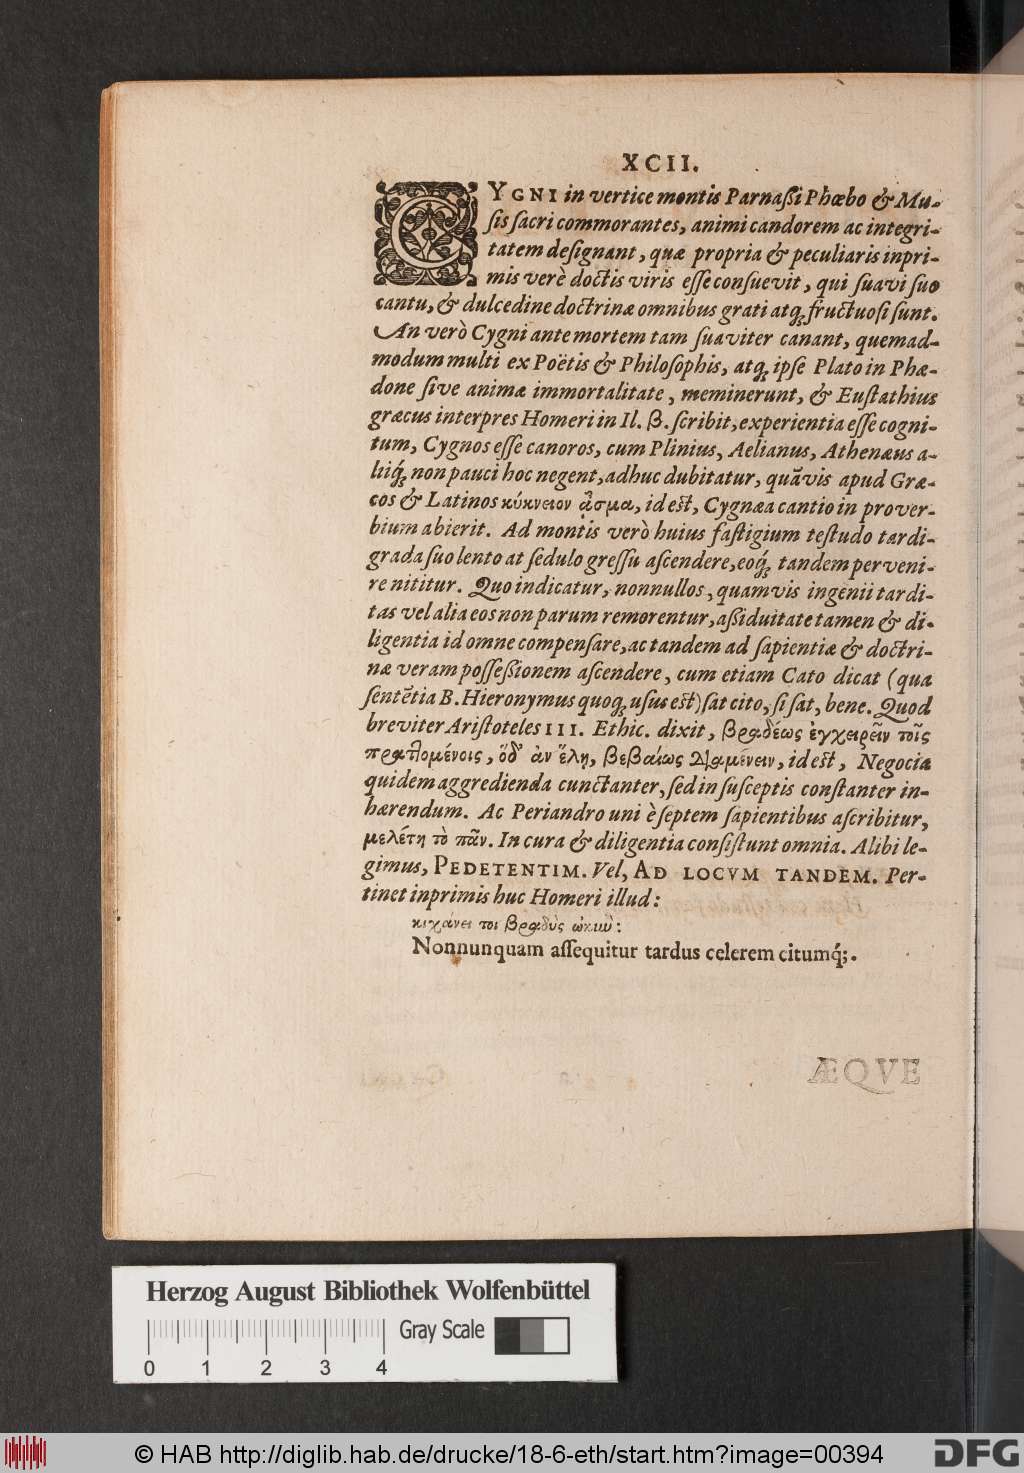 XCII.
CYGNI in vertice montis Parnaßi Phœbo & Mu-
sis sacri commorantes, animi candorem ac integri-
tatem designant, quæ propria & peculiaris inpri-
mis verè doctis viris esse consuevit, qui suavi suo
cantu, & dulcedine doctrinæ omnibus grati atq; fructuosi sunt.
An verò Cygni ante mortem tam suaviter canant, quemad-
modum multi ex Poëtis & Philosophis, atq; ipse Plato in Phæ-
done sive animæ immortalitate, meminerunt, & Eustathius
græcus interpres Homeri in Il. β. scribit, experientia esse cogni-
tum, Cygnos esse canoros, cum Plinius, Aelianus, Athenæus a-
liiq́; non pauci hoc negent, adhuc dubitatur, quāvis apud Græ-
cos & Latinos κύκνειον ᾆσμα, id est, Cygnæa cantio in prover-
bium abierit. Ad montis verò huius fastigium testudo tardi-
grada suo lento at sedulo gressu ascendere, eoq́; tandem perveni-
re nititur. Quo indicatur, nonnullos, quamvis ingenii tardi-
tas vel alia eos non parum remorentur, aßiduitate tamen & di-
ligentia id omne compensare, ac tandem ad sapientiæ & doctri-
næ veram posseßionem ascendere, cum etiam Cato dicat (qua
sentētia B. Hieronymus quoq; usus est) sat cito, si sat, bene. Quod
breviter Aristoteles III. Ethic. dixit, βραδέως ἐγχειρεῖν τοῖς
πραττομένοις, ὅδ' ἀν ἕλῃ, βεβαίως διαμένειν, id est, Negocia
quidem aggredienda cunctanter, sed in susceptis constanter in-
hærendum. Ac Periandro uni è septem sapientibus ascribitur,
μελέτη τὸ πᾶν. In cura & diligentia consistunt omnia. Alibi le-
gimus, PEDETENTIM. Vel, AD LOCVM TANDEM. Per-
tinet inprimis huc Homeri illud:
κιχάνει τοι βραδὺς ὠκιώ:
Nonnunquam assequitur tardus celerem citumq́;.
ÆQVE
Herzog August Bibliothek Wolfenbüttel
Gray Scale
0 1 2 3 4
© HAB http://diglib.hab.de/drucke/18-6-eth/start.htm?image=00394
DFG